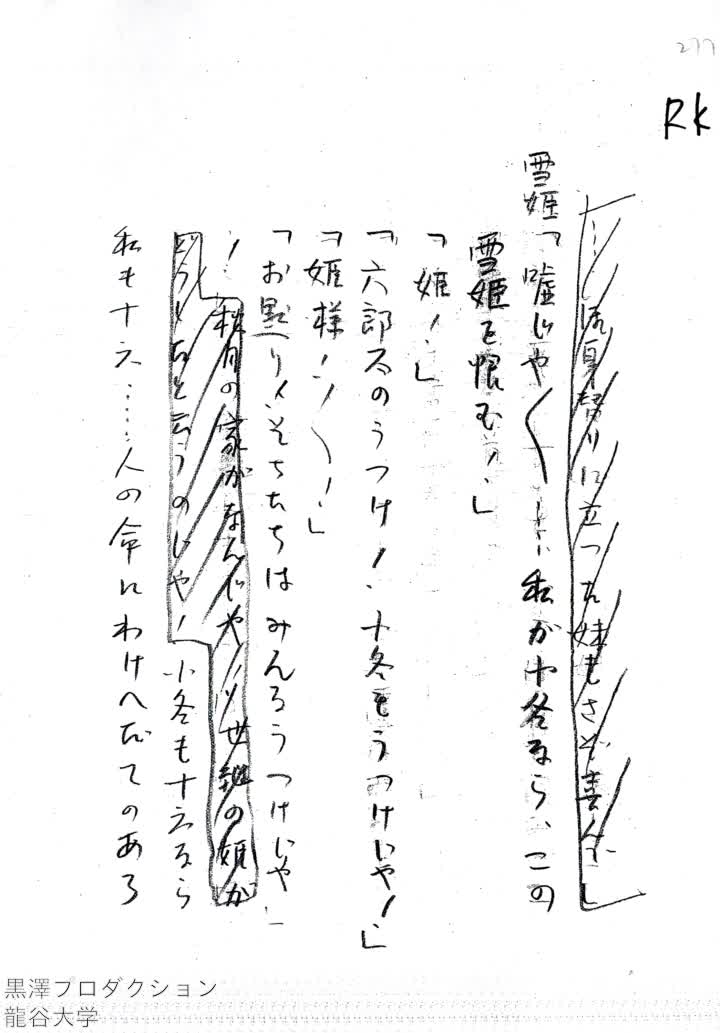 277
RK
……お身替りに立つた妹もさぞ喜んで」
雪姫「嘘じや〱……私が小冬なら、この
雪姫を恨む！」
「姫！」
「六郎太のうつけ！小冬もうつけじや！」
「姫様！〱！」
「お黙り！そちたちはみんなうつけじや
！秋月の家がなんじや！世継の姫が
どうしたと云うのじや！小冬も十六なら
私も十六……人の命にわけへだてのある
黒澤プロダクション
龍谷大学